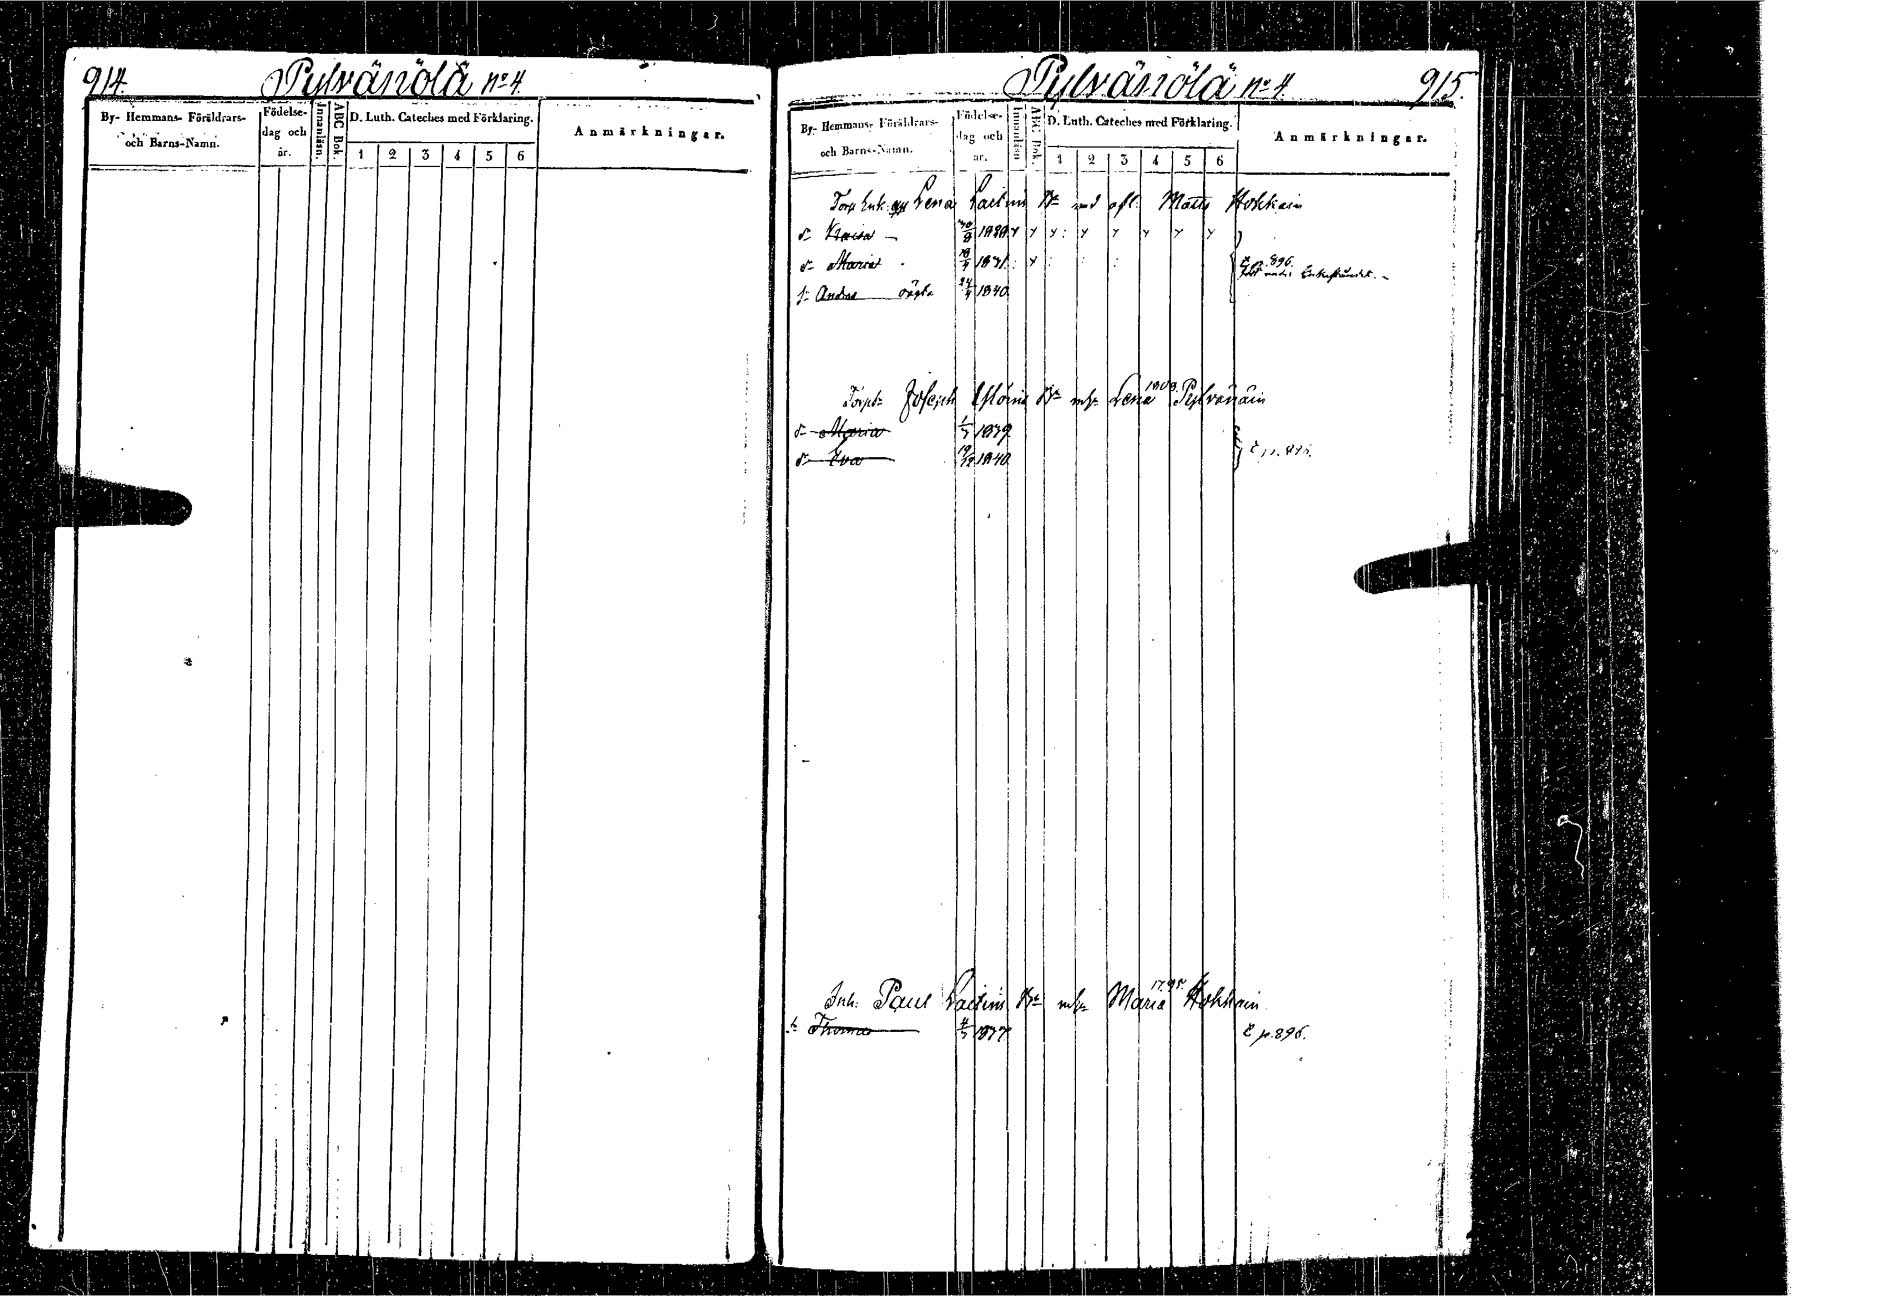 914. Pylvänölä nº 4.
By- Hemmans- Föräldrars-
och Barns-Namn.
Födelse-
dag och
år.
Innanläsn.
ABC Bok.
D. Luth. Cateches med Förklaring.
1 2 3 4 5 6
Anmärkningar.
Pylvänölä nº 4. 915.
By- Hemmans- Föräldrars-
och Barns-Namn.
Födelse-
dag och
år.
Innanläsn
ABC Bok.
D. Luth. Cateches med Förklaring.
1 2 3 4 5 6
Anmärkningar.
Lena Laitin Dr Matts Hokkain
dr Kaisa
dr Maria 1831 p. 896.
s: Andrs oägta 24/4 1840
Joseph mhu Lena 1808. Pylvänäin
dr Maria 1/7 1839
dr Eva 19/12 1840
Inh. Paul Laitin mhu Maria Hokkain
s: Thomas 4/7 1837 p. 896.